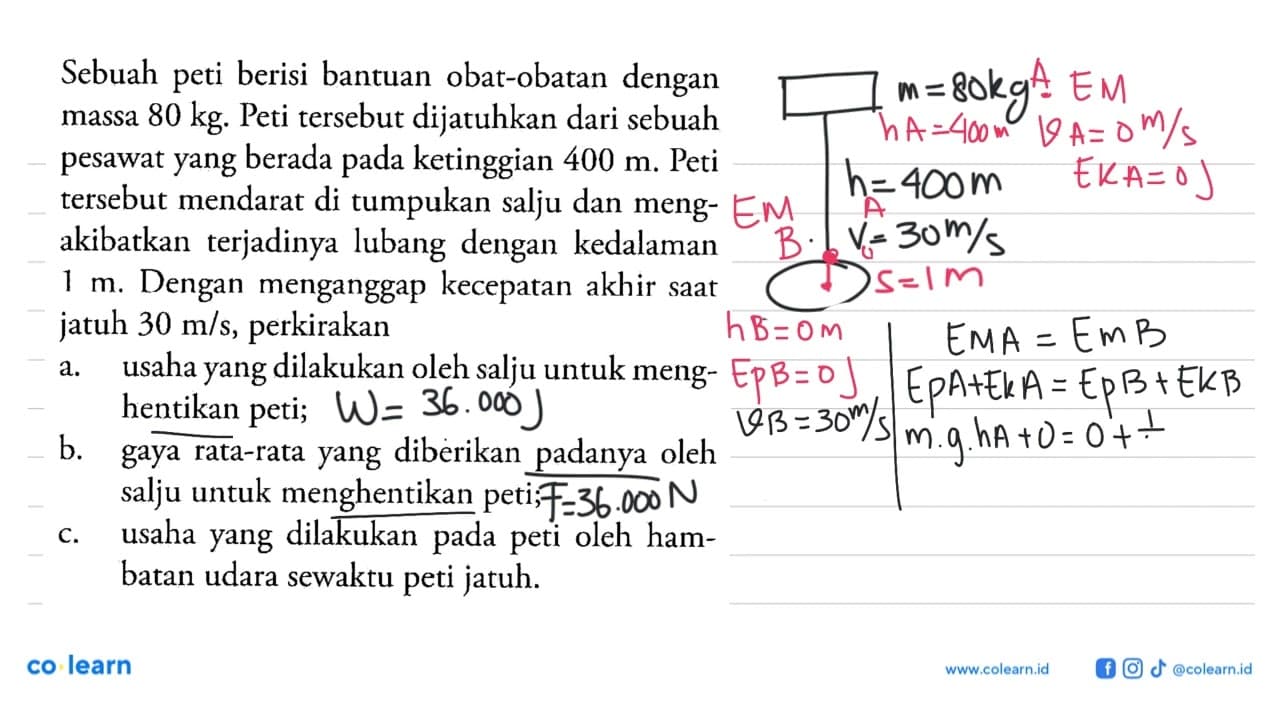 Sebuah peti berisi bantuan obat-obatan dengan
massa 80 kg. Peti tersebut dijatuhkan dari sebuah
pesawat yang berada pada ketinggian 400 m. Peti
tersebut mendarat di tumpukan salju dan meng-
akibatkan terjadinya lubang dengan kedalaman
1 m. Dengan menganggap kecepatan akhir saat
jatuh 30 m/s, perkirakan
a. usaha yang dilakukan oleh salju untuk meng-
hentikan peti; W = 36.000 J
b. gaya rata-rata yang diberikan padanya oleh
salju untuk menghentikan peti; F=36.000 N
c. usaha yang dilakukan pada peti oleh ham-
batan udara sewaktu peti jatuh.
m = 80kg A. EM
hA=400 m vA= 0 m/s
h= 400m EKA=0 J
EM A
B. V0= 30 m/s
S=1M
hB=0M
EpB=0 J
vB=30 m/s
EMA = EmB
EpA+EkA = EpB+EKB
m.g.hA+0=0+1
co learn
www.colearn.id @colearn.id